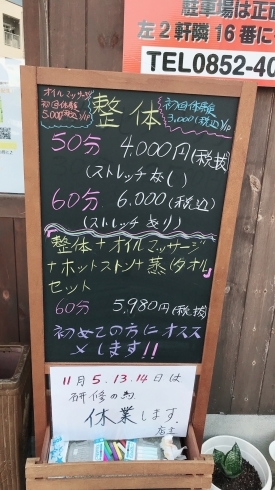 駐車場は正面
左2軒隣16番に
TEL0852-40
オイルマッサージ
初回体験
5,000(税込)
整体
初回体験
3,000(税込)
50分 4,000円(税抜)
(ストレッチなし)
60分 6,000(税込)
(ストレッチあり)
整体+オイルマッサージ
+ホットストン+蒸しタオル
セット
60分 5,980円(税抜)
初めての方にオスス
メします!!
11月5.13.14日は
研修の為
休業します.
店主